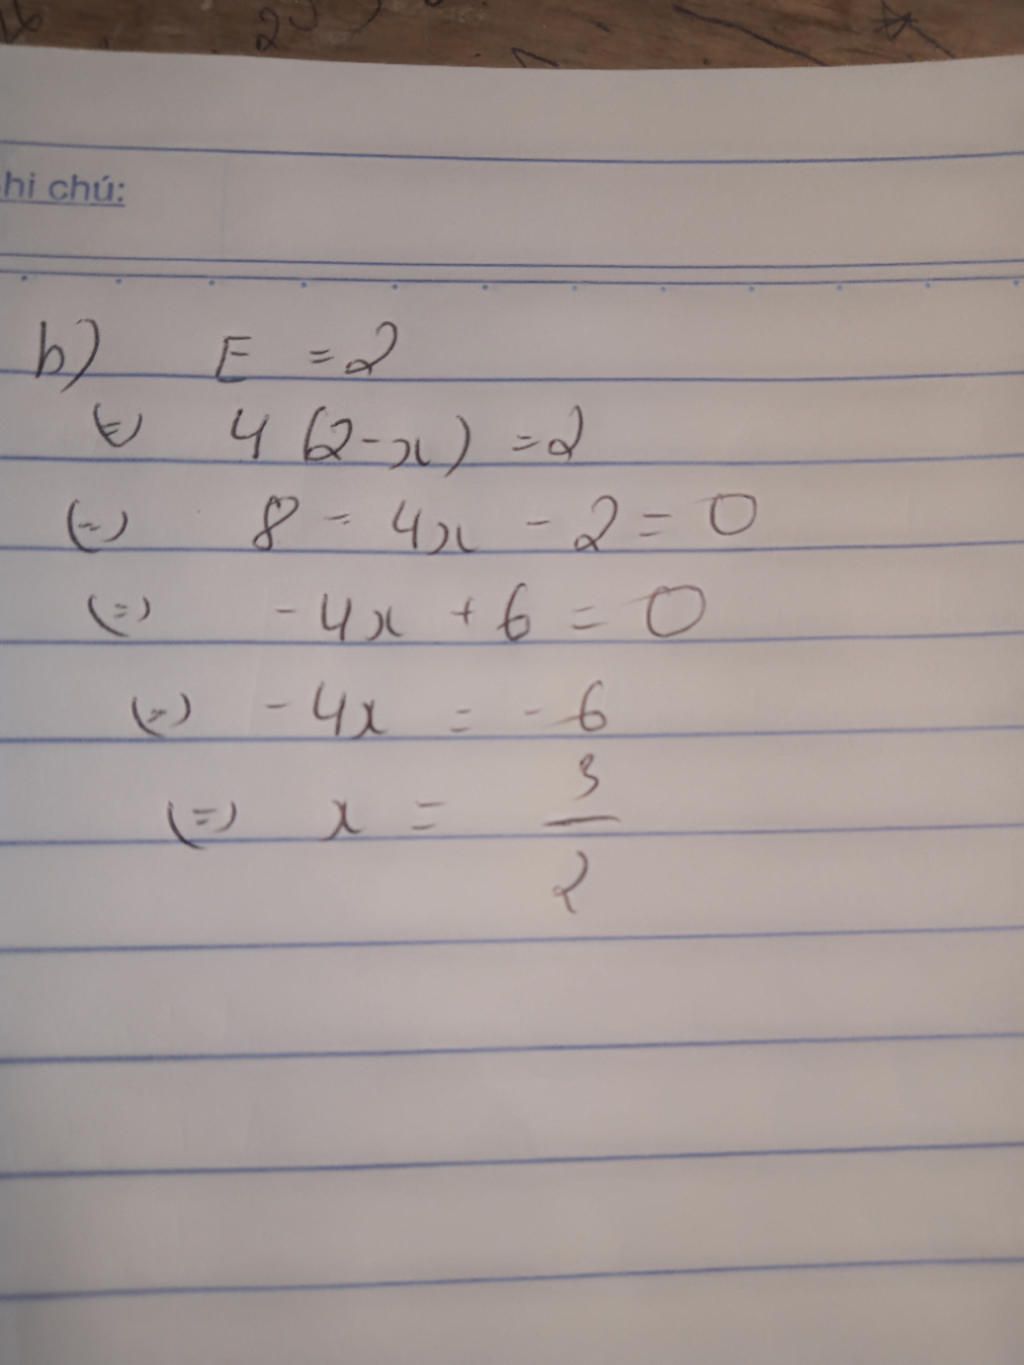 hi chú:
b) E = 2
(=) 4 (2-x) = 2
(=) 8 - 4x - 2 = 0
(=) -4x + 6 = 0
(=) -4x = -6
(=) x = 3/2